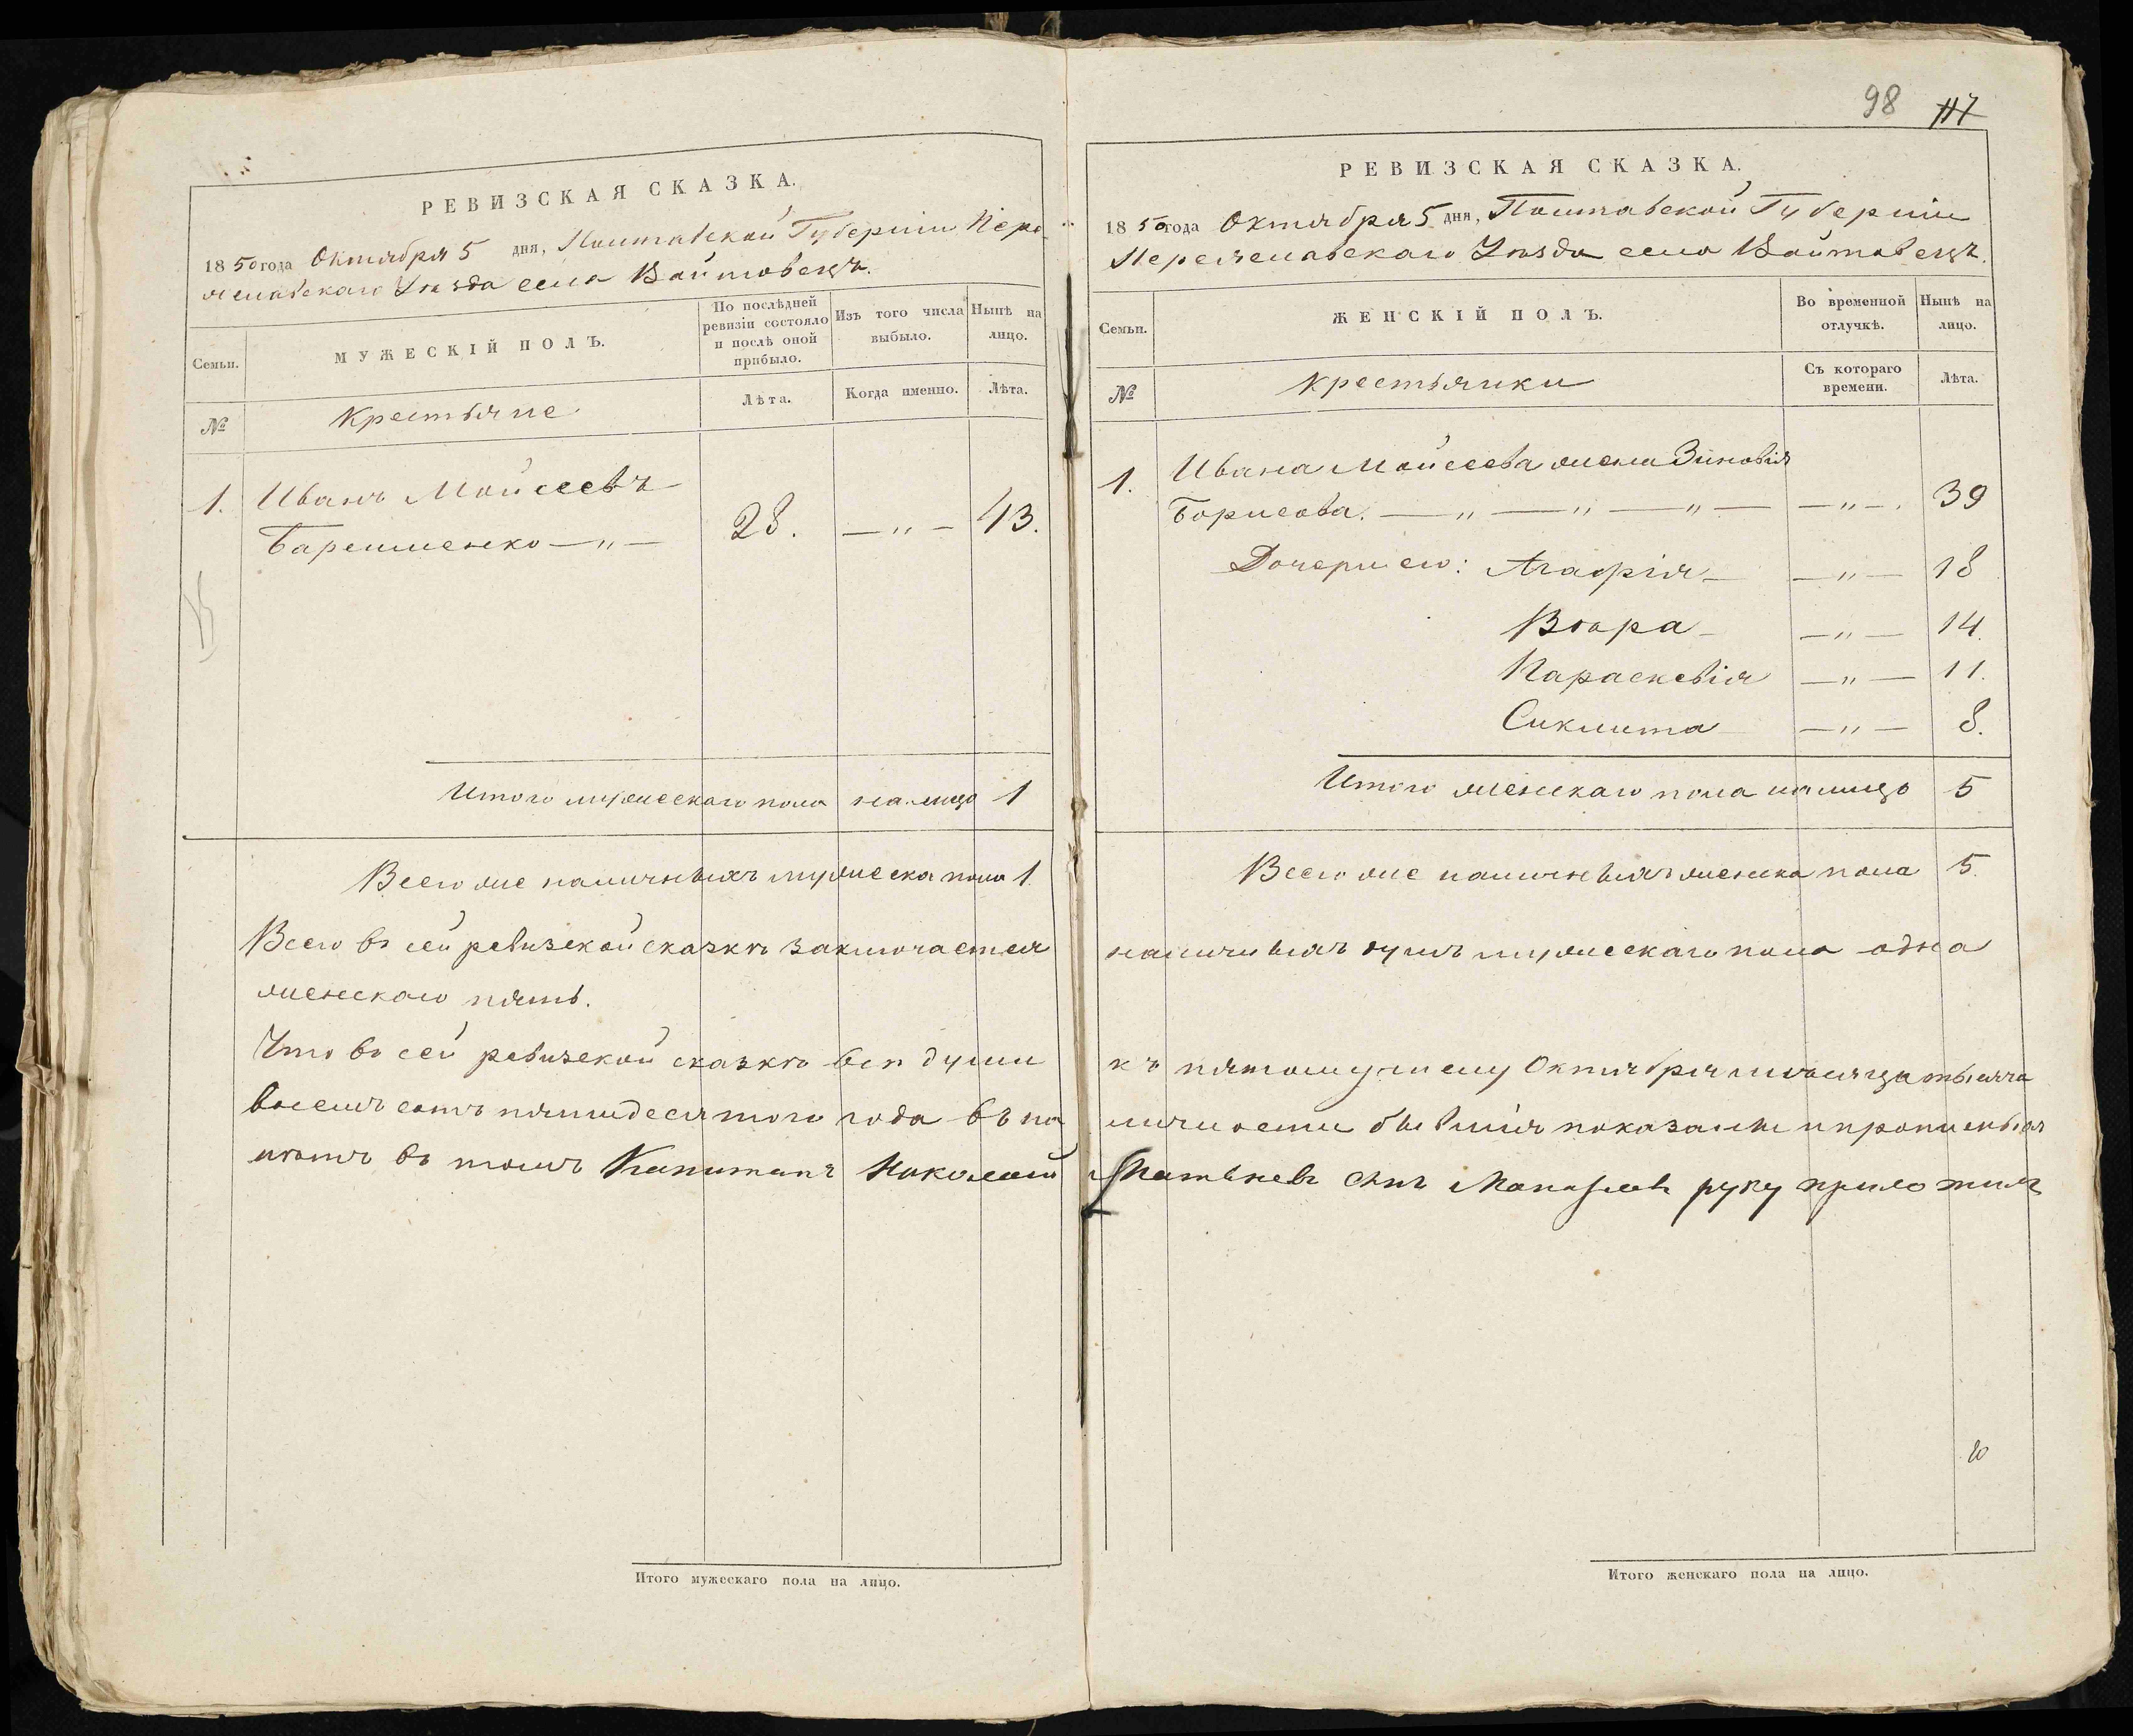 РЕВИЗСКАЯ СКАЗКА.
1850 года Октября 5 дня, Полтавской Губерніи Пере-
яславскаго Уѣзда села Войтовецъ.
Семьи.
МУЖЕСКІЙ ПОЛЪ.
По послѣдней
ревизіи состояло
и послѣ оной
прибыло.
Изъ того числа
выбыло.
Нынѣ на
лицо.
№
Крестьяне
Лѣта.
Когда именно.
Лѣта.
1. Иванъ Мойсеевъ
Барешенко —„— 28. —„— 43.
Итого мужескаго пола на лицо 1
Всего же наличныхъ мужеска пола 1.
Всего въ сей ревизской сказкѣ заключается
женскаго пять.
Что въ сей ревизской сказкѣ всѣ души
восемъ сотъ пятидесятого года въ на
въ томъ Капитанъ Николай
Итого мужескаго пола на лицо.
98 117
РЕВИЗСКАЯ СКАЗКА.
1850 года Октября 5 дня, Полтавской Губерніи
Переяславскаго Уѣзда села Войтовецъ.
Семьи.
ЖЕНСКІЙ ПОЛЪ.
Во временной
отлучкѣ.
Нынѣ на
лицо.
№
Крестьянки
Съ котораго
времени.
Лѣта.
1. Ивана Мойсеева жена Зиновія
Борисова. —„—„—„— —„—. 39
Дочери его: Агафія —„— 18
Вѣра —„— 14.
Параскевія —„— 11.
Сиклита —„— 8.
Итого женскаго пола на лицо 5
Всего же наличныхъ женска пола 5.
наличныхъ душъ мужескаго пола одна
къ пятому числу Октября мѣсяца тысяча
личности бывшія показаны и прописныхъ
сынъ руку приложилъ
Итого женскаго пола на лицо.